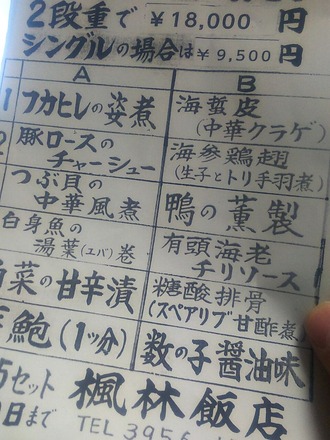 2段重で ¥18,000 円
シングルの場合は ¥9,500 円
A B
1 フカヒレの姿煮
海蜇皮
(中華クラゲ)
豚ロースの
チャーシュー
海参鶏翅
(生子とトリ手羽煮)
つぶ貝の
中華風煮
鴨の薫製
白身魚の
湯葉(ユバ)巻
有頭海老
チリソース
菜の甘辛漬
糖酸排骨
(スペアリブ甘酢煮)
鮑(1ッ分)
数の子醤油味
5セット 楓林飯店
日まで TEL 3956